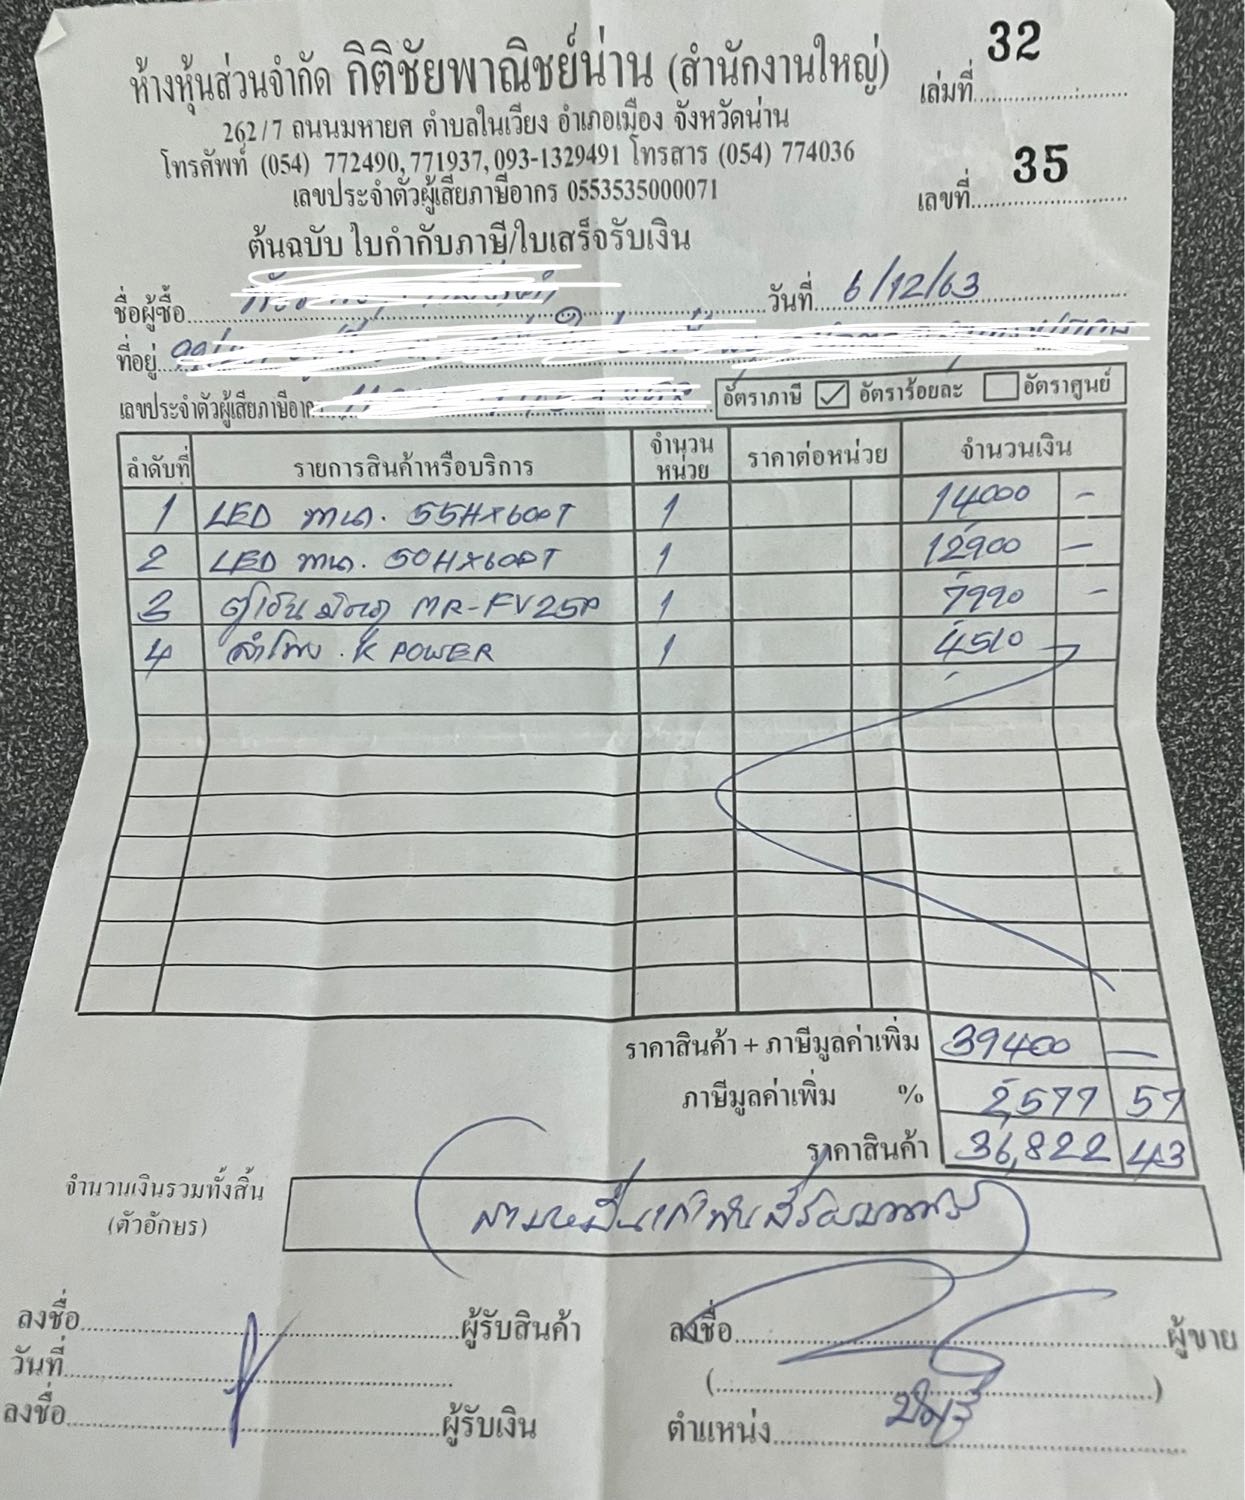 ห้างหุ้นส่วนจำกัด กิติชัยพาณิชย์น่าน (สำนักงานใหญ่) เล่มที่ 32
262/7 ถนนมหายศ ตำบลในเวียง อำเภอเมือง จังหวัดน่าน
โทรศัพท์ (054) 772490, 771937, 093-1329491 โทรสาร (054) 774036
เลขประจำตัวผู้เสียภาษีอากร 0553535000071 เลขที่ 35
ต้นฉบับ ใบกำกับภาษี/ใบเสร็จรับเงิน
ชื่อผู้ซื้อ วันที่ 6/12/63
ที่อยู่
เลขประจำตัวผู้เสียภาษีอา อัตราภาษี ✓ อัตราร้อยละ อัตราศูนย์
ลำดับที่ รายการสินค้าหรือบริการ จำนวนหน่วย ราคาต่อหน่วย จำนวนเงิน
1 LED พานา. 55HX600T 1 14000 -
2 LED พานา. 50HX600T 1 12900 -
3 ตู้เย็น มิตซู MR-FV25P 1 7990 -
4 ลำโพง. K POWER 1 4510
ราคาสินค้า + ภาษีมูลค่าเพิ่ม 39400 -
ภาษีมูลค่าเพิ่ม % 2,577 57
ราคาสินค้า 36,822 43
จำนวนเงินรวมทั้งสิ้น
(ตัวอักษร) สามหมื่นเก้าพันสี่ร้อยบาท
ลงชื่อ ผู้รับสินค้า ลงชื่อ ผู้ขาย
วันที่ ( )
ลงชื่อ ผู้รับเงิน ตำแหน่ง